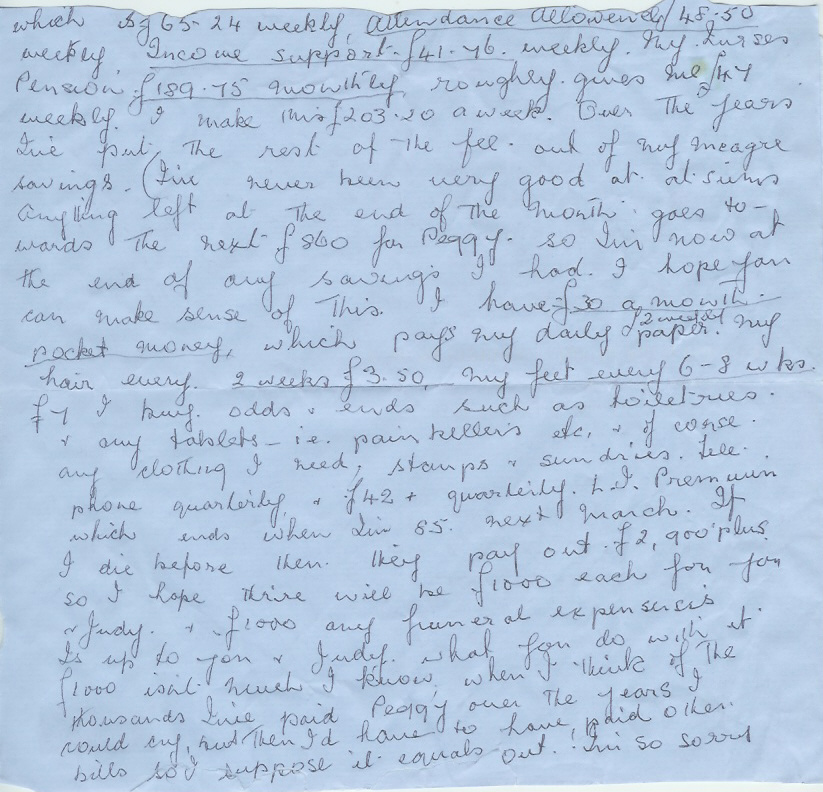 which is £65-24 weekly, Attendance Allowence £48.50
weekly, Income support £41-76. weekly. My Nurses
Pension £189-75 monthly, roughly gives me £47
weekly. I make this £203.20 a week. Over the years
I've put the rest of the fee. out of my meagre
savings. (I've never been very good at at sums
anything left at the end of the month goes to-
wards the next £860 for Peggy. so I'm now at
the end of any savings I had. I hope you
can make sense of This. I have £30 a month.
pocket money, which pays my daily & 2 weekly paper. my
hair every. 2 weeks £3.50, my feet every 6-8 wks.
£7 I buy. odds & ends such as toiletries.
& any tablets - i.e. painkillers etc, & of corse.
any clothing I need, stamps & sundries. Tele-
phone quarterly, & £42 + quarterly. L.I. Premium
which ends when I'm 85. next March. If
I die before then. they pay out £2,900 plus
so I hope there will be £1000 each for you
& Judy. & £1000 any funeral expenses
Is up to you & Judy. what you do with it.
£1000 isn't much I know, when I think of The
thousands I've paid Peggy over the years I
could cry, but then I'd have to have paid other
bills so I suppose it equals out! I'm so sorry